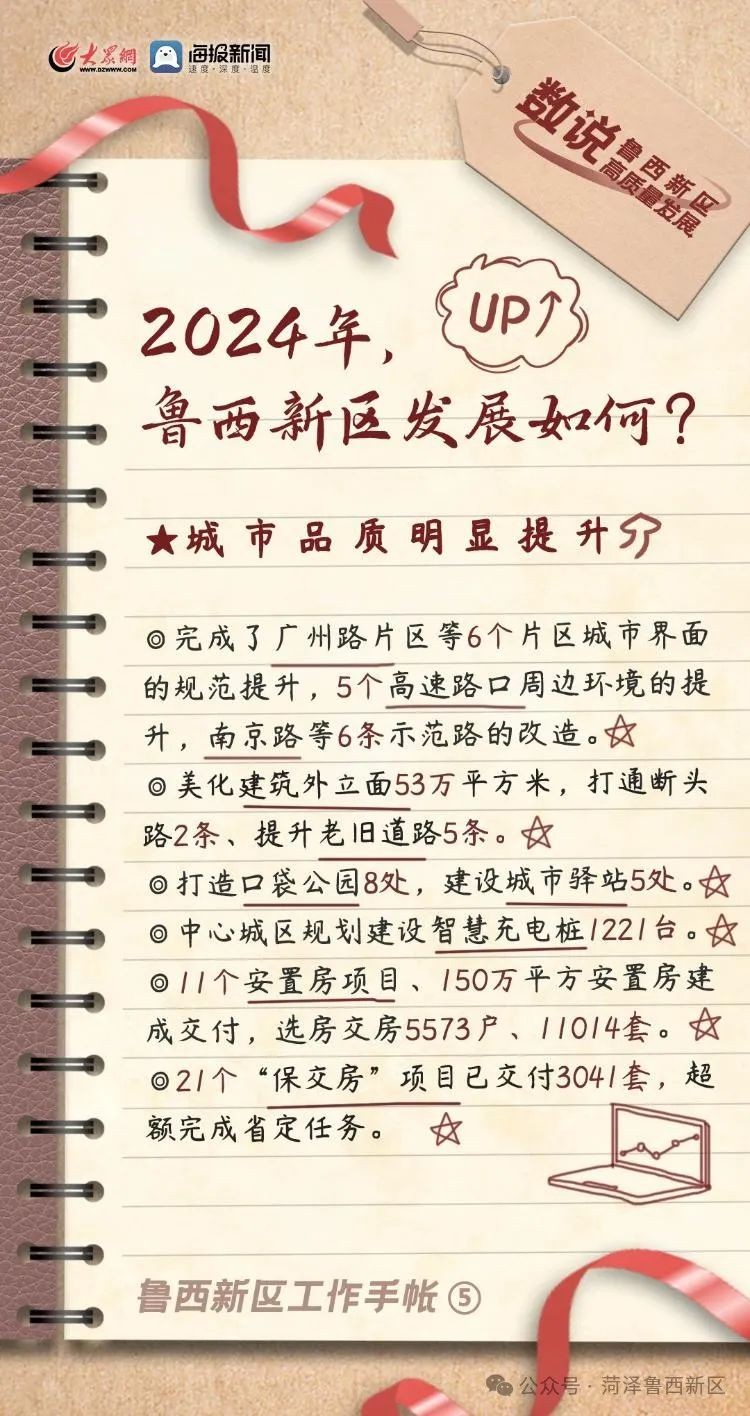 大众網
WWW.DZWWW.COM
海报新闻
速度·深度·温度
数说
鲁西新区
高质量发展
UP↑
2024年，
鲁西新区发展如何？
★城市品质明显提升
◎完成了广州路片区等6个片区城市界面
的规范提升，5个高速路口周边环境的提
升，南京路等6条示范路的改造。☆
◎美化建筑外立面53万平方米，打通断头
路2条、提升老旧道路5条。☆
◎打造口袋公园8处，建设城市驿站5处。☆
◎中心城区规划建设智慧充电桩1221台。☆
◎11个安置房项目、150万平方安置房建
成交付，选房交房5573户、11014套。☆
◎21个“保交房”项目已交付3041套，超
额完成省定任务。☆
鲁西新区工作手帐⑤
公众号·菏泽鲁西新区